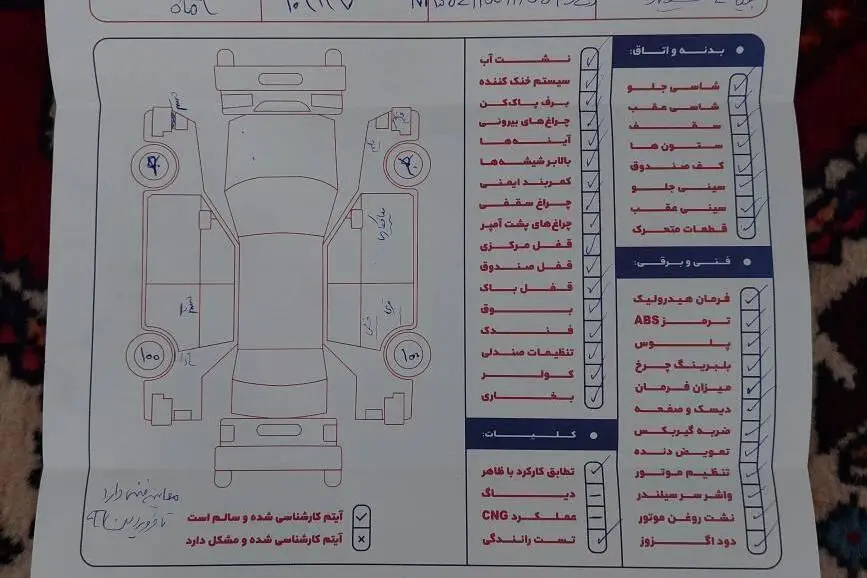 بدنه و اتاق:
شاسی جلو
شاسی عقب
سقف
ستون ها
کف صندوق
سینی جلو
سینی عقب
قطعات متحرک
فنی و برقی:
فرمان هیدرولیک
ترمز ABS
پلوس
بلبرینگ چرخ
میزان فرمان
دیسک و صفحه
ضربه گیربکس
تعویض دنده
تنظیم موتور
واشر سر سیلندر
نشت روغن موتور
دود اگزوز
نشت آب
سیستم خنک کننده
برف پاک‌کن
چراغ‌های بیرونی
آینه‌ها
بالابر شیشه‌ها
کمربند ایمنی
چراغ سقفی
چراغ‌های پشت آمپر
قفل مرکزی
قفل صندوق
قفل باک
بوق
فندک
تنظیمات صندلی
کولر
بخاری
کلیات:
تطابق کارکرد با ظاهر
دیاگ
عملکرد CNG
تست رانندگی
۱۰۰
آیتم کارشناسی شده و سالم است
آیتم کارشناسی شده و مشکل دارد
معاینه فنی دارد